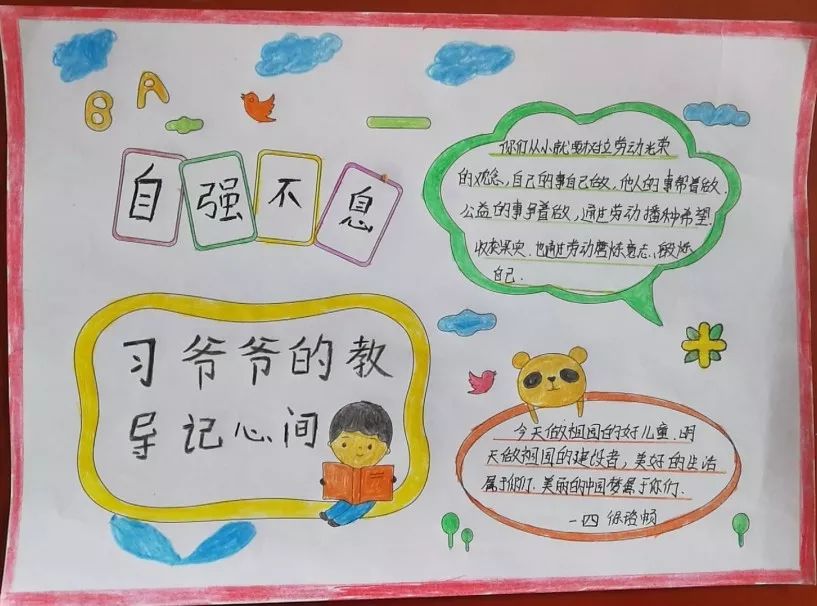 B A
自强不息
你们从小就要树立劳动光荣
的观念,自己的事自己做,他人的事帮着做.
公益的事争着做,通过劳动播种希望.
收获果实.也通过劳动磨炼意志,锻炼
自己.
习爷爷的教
导记心间
今天做祖国的好儿童.明
天做祖国的建设者,美好的生活
属于你们.美丽的中国梦属于你们.
一四